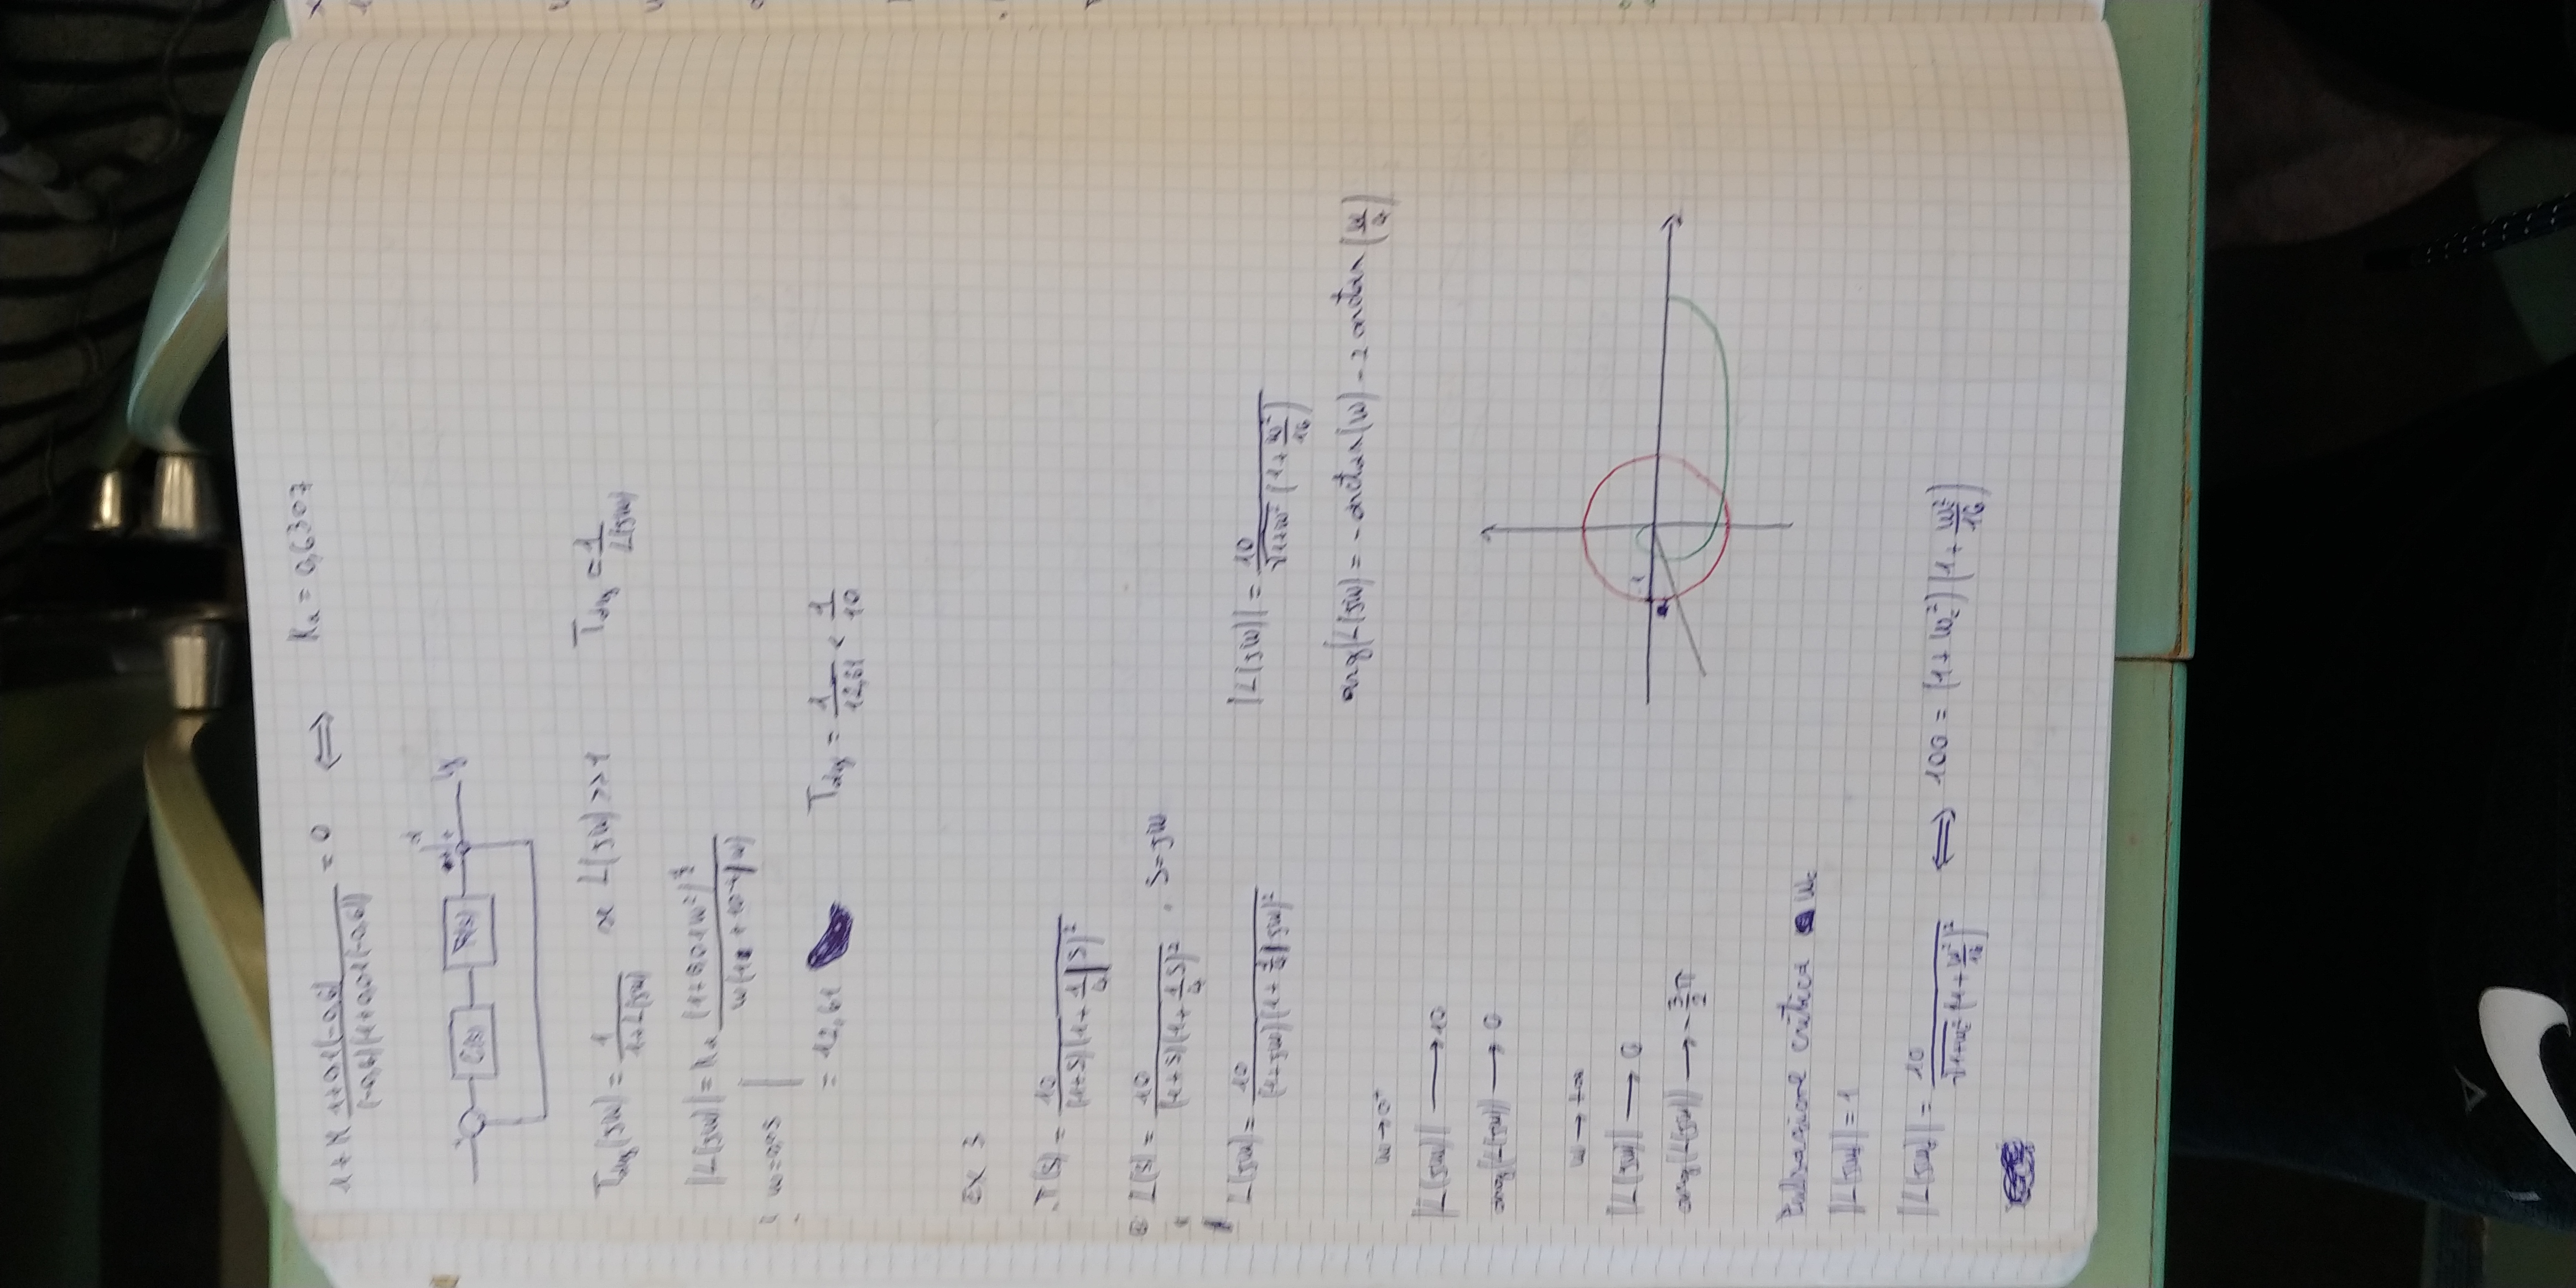 1 + K (1+0,1(-0,6)) / ((-0,6)(1+0,01(-0,6))) = 0 ⟺ Kα = 0,6307
d
C(s) P(s) y
Tdy(jw) = 1 / (1+L(jw)) se L(jw) >> 1 Tdy = 1 / L(jw)
|L(jw)| = Kα (1+0,01w²)^½ / w(1+10⁻⁴w)
w=0,05
= 12,61 Tdy = 1/12,61 < 1/10
Ex 3
P(s) = 10 / (1+s)(1+1/4 s)²
L(s) = 10 / (1+s)(1+1/4 s)² , s=jw
L(jw) = 10 / (1+jw)(1+1/4 jw)² |L(jw)| = 10 / √(1+w²) (1+w²/16)
arg(L(jw) = - arctan(w) - 2 arctan(w/4)
w → 0⁺
|L(jw)| → 10
arg(L(jw)) → 0
w → +∞
|L(jw)| → 0
arg(L(jw)) → -3/2 π
-1
Pulsazione critica wc
|L(jwc)| = 1
|L(jwc)| = 10 / √(1+wc²) (1+w²/16)² ⟺ 100 = (1+wc²)(1+wc²/16)